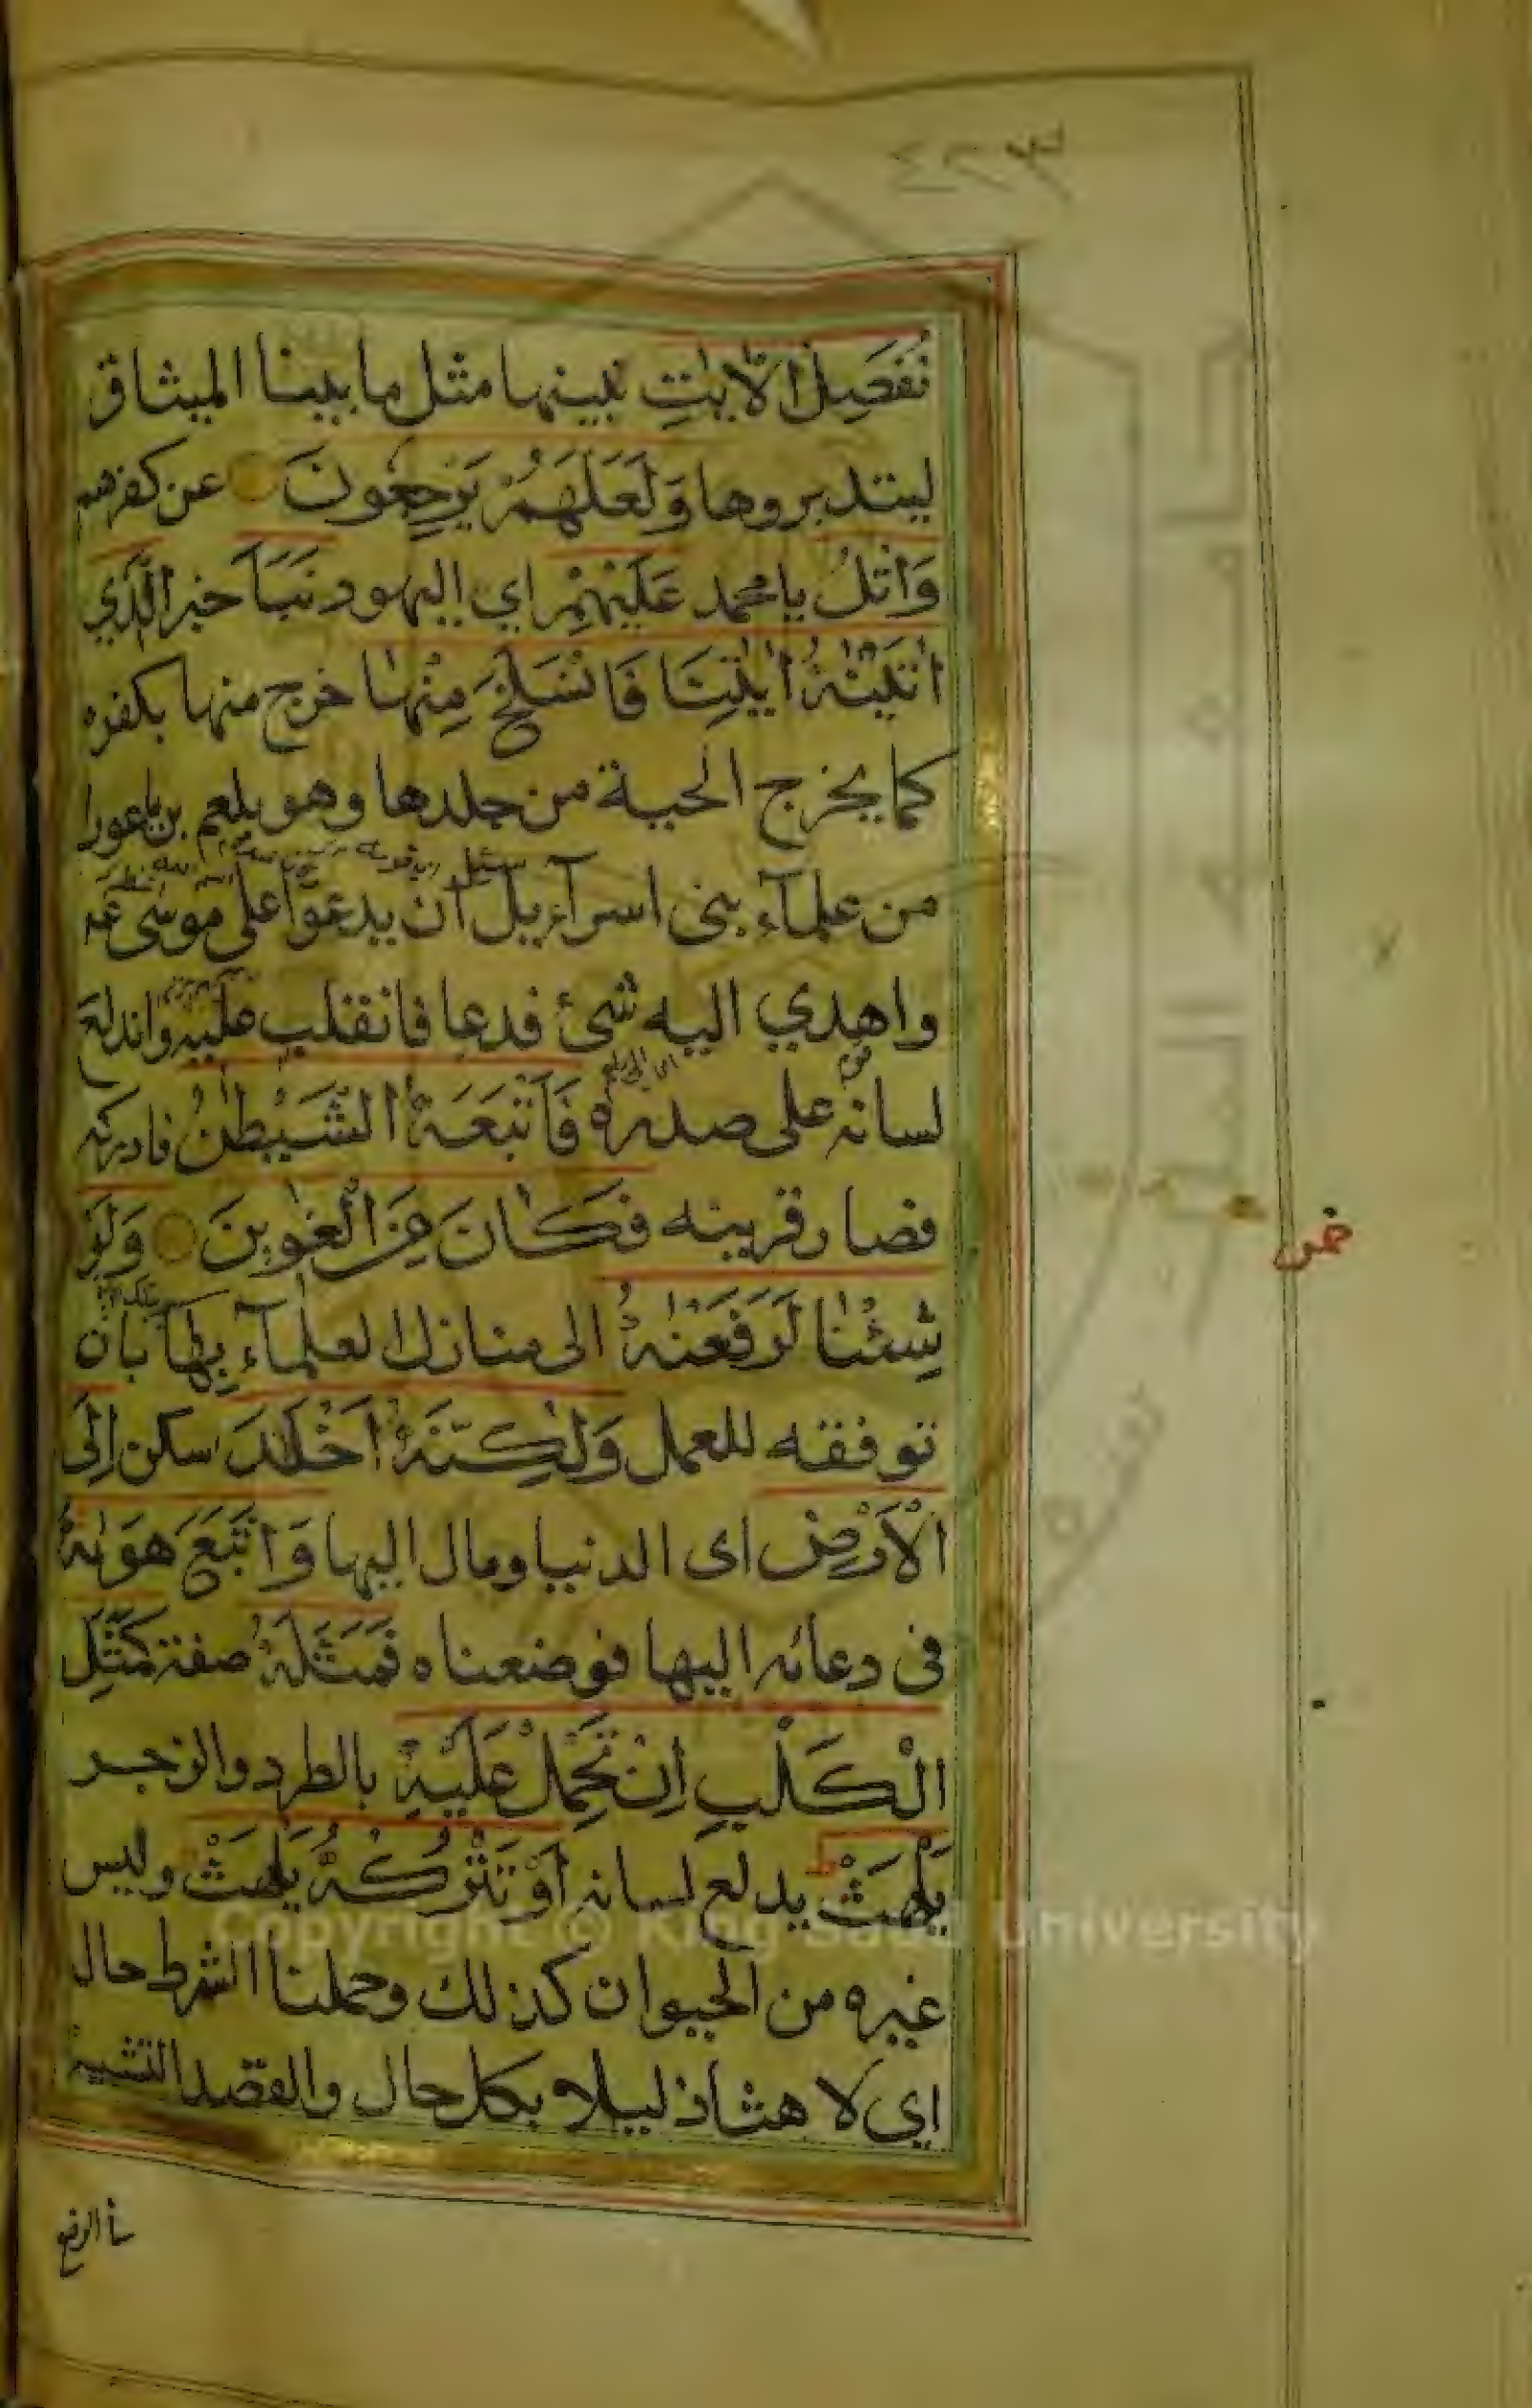 نُفَصِّلُ الْاٰيٰتِ نبينها مثل ما بينا الميثاق
ليتدبروها وَلَعَلَّهُمْ يَرْجِعُونَ عن كفرهم
وَاتْلُ يا محمد عَلَيْهِمْ اي اليهود نَبَأَ خبر الَّذِي
اٰتَيْنٰهُ اٰيٰتِنَا فَانْسَلَخَ مِنْهَا خرج منها بكفره
كما يخرج الحية من جلدها وهو بلعم بن باعورا
من علمآء بنى اسرآئيل ان يدعوا على موسى
سئل
واهدي اليه شئ فدعا فانقلب عليه واندلع
لسانه على صدره فَاَتْبَعَهُ الشَّيْطٰنُ فادركه
فصار قرينه فَكَانَ مِنَ الْغٰوِينَ وَلَوْ
شِئْنَا لَرَفَعْنٰهُ الى منازل العلمآء بِهَا بان
نوفقه للعمل وَلٰكِنَّهُ اَخْلَدَ سكن اِلَى
الْاَرْضِ اى الدنيا ومال اليها وَاتَّبَعَ هَوٰىهُ
فى دعائه اليها فوضعناه فَمَثَلُهُ صفته كَمَثَلِ
الْكَلْبِ اِنْ تَحْمِلْ عَلَيْهِ بالطرد والزجر
يَلْهَثْ يدلع لسانه اَوْ تَتْرُكْهُ يَلْهَثْ وليس
غيره من الحيوان كذلك وجملنا الشرط حال
اي لا هثا ذليلا بكل حال والقصد التشبيه
Copyright © King Saud University